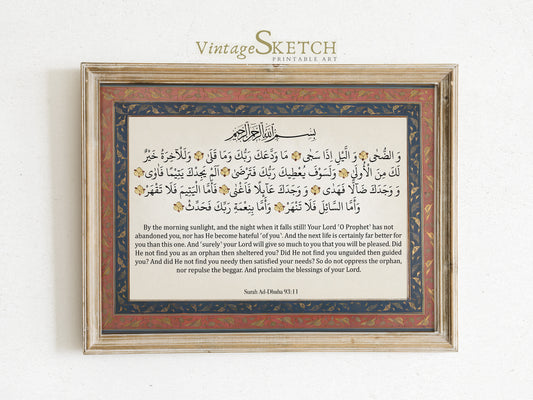 VintageSKETCH
PRINTABLE ART
بِسْمِ اللَّهِ الرَّحْمَٰنِ الرَّحِيمِ
وَ الضُّحٰى وَ الَّيْلِ اِذَا سَجٰى مَا وَدَّعَكَ رَبُّكَ وَمَا قَلٰى وَلَلْاٰخِرَةُ خَيْرٌ
لَّكَ مِنَ الْاُولٰى وَلَسَوْفَ يُعْطِيكَ رَبُّكَ فَتَرْضٰى اَلَمْ يَجِدْكَ يَتِيْمًا فَاٰوٰى
وَ وَجَدَكَ ضَآلًّا فَهَدٰى وَ وَجَدَكَ عَآىِٕلًا فَاَغْنٰى فَاَمَّا الْيَتِيْمَ فَلَا تَقْهَرْ
وَاَمَّا السَّآىِٕلَ فَلَا تَنْهَرْ وَاَمَّا بِنِعْمَةِ رَبِّكَ فَحَدِّثْ
By the morning sunlight, and the night when it falls still! Your Lord 'O Prophet' has not
abandoned you, nor has He become hateful 'of you'. And the next life is certainly far better for
you than this one. And 'surely' your Lord will give so much to you that you will be pleased. Did
He not find you as an orphan then sheltered you? Did He not find you unguided then guided
you? And did He not find you needy then satisfied your needs? So do not oppress the orphan,
nor repulse the beggar. And proclaim the blessings of your Lord.
Surah Ad-Dhuha 93:11